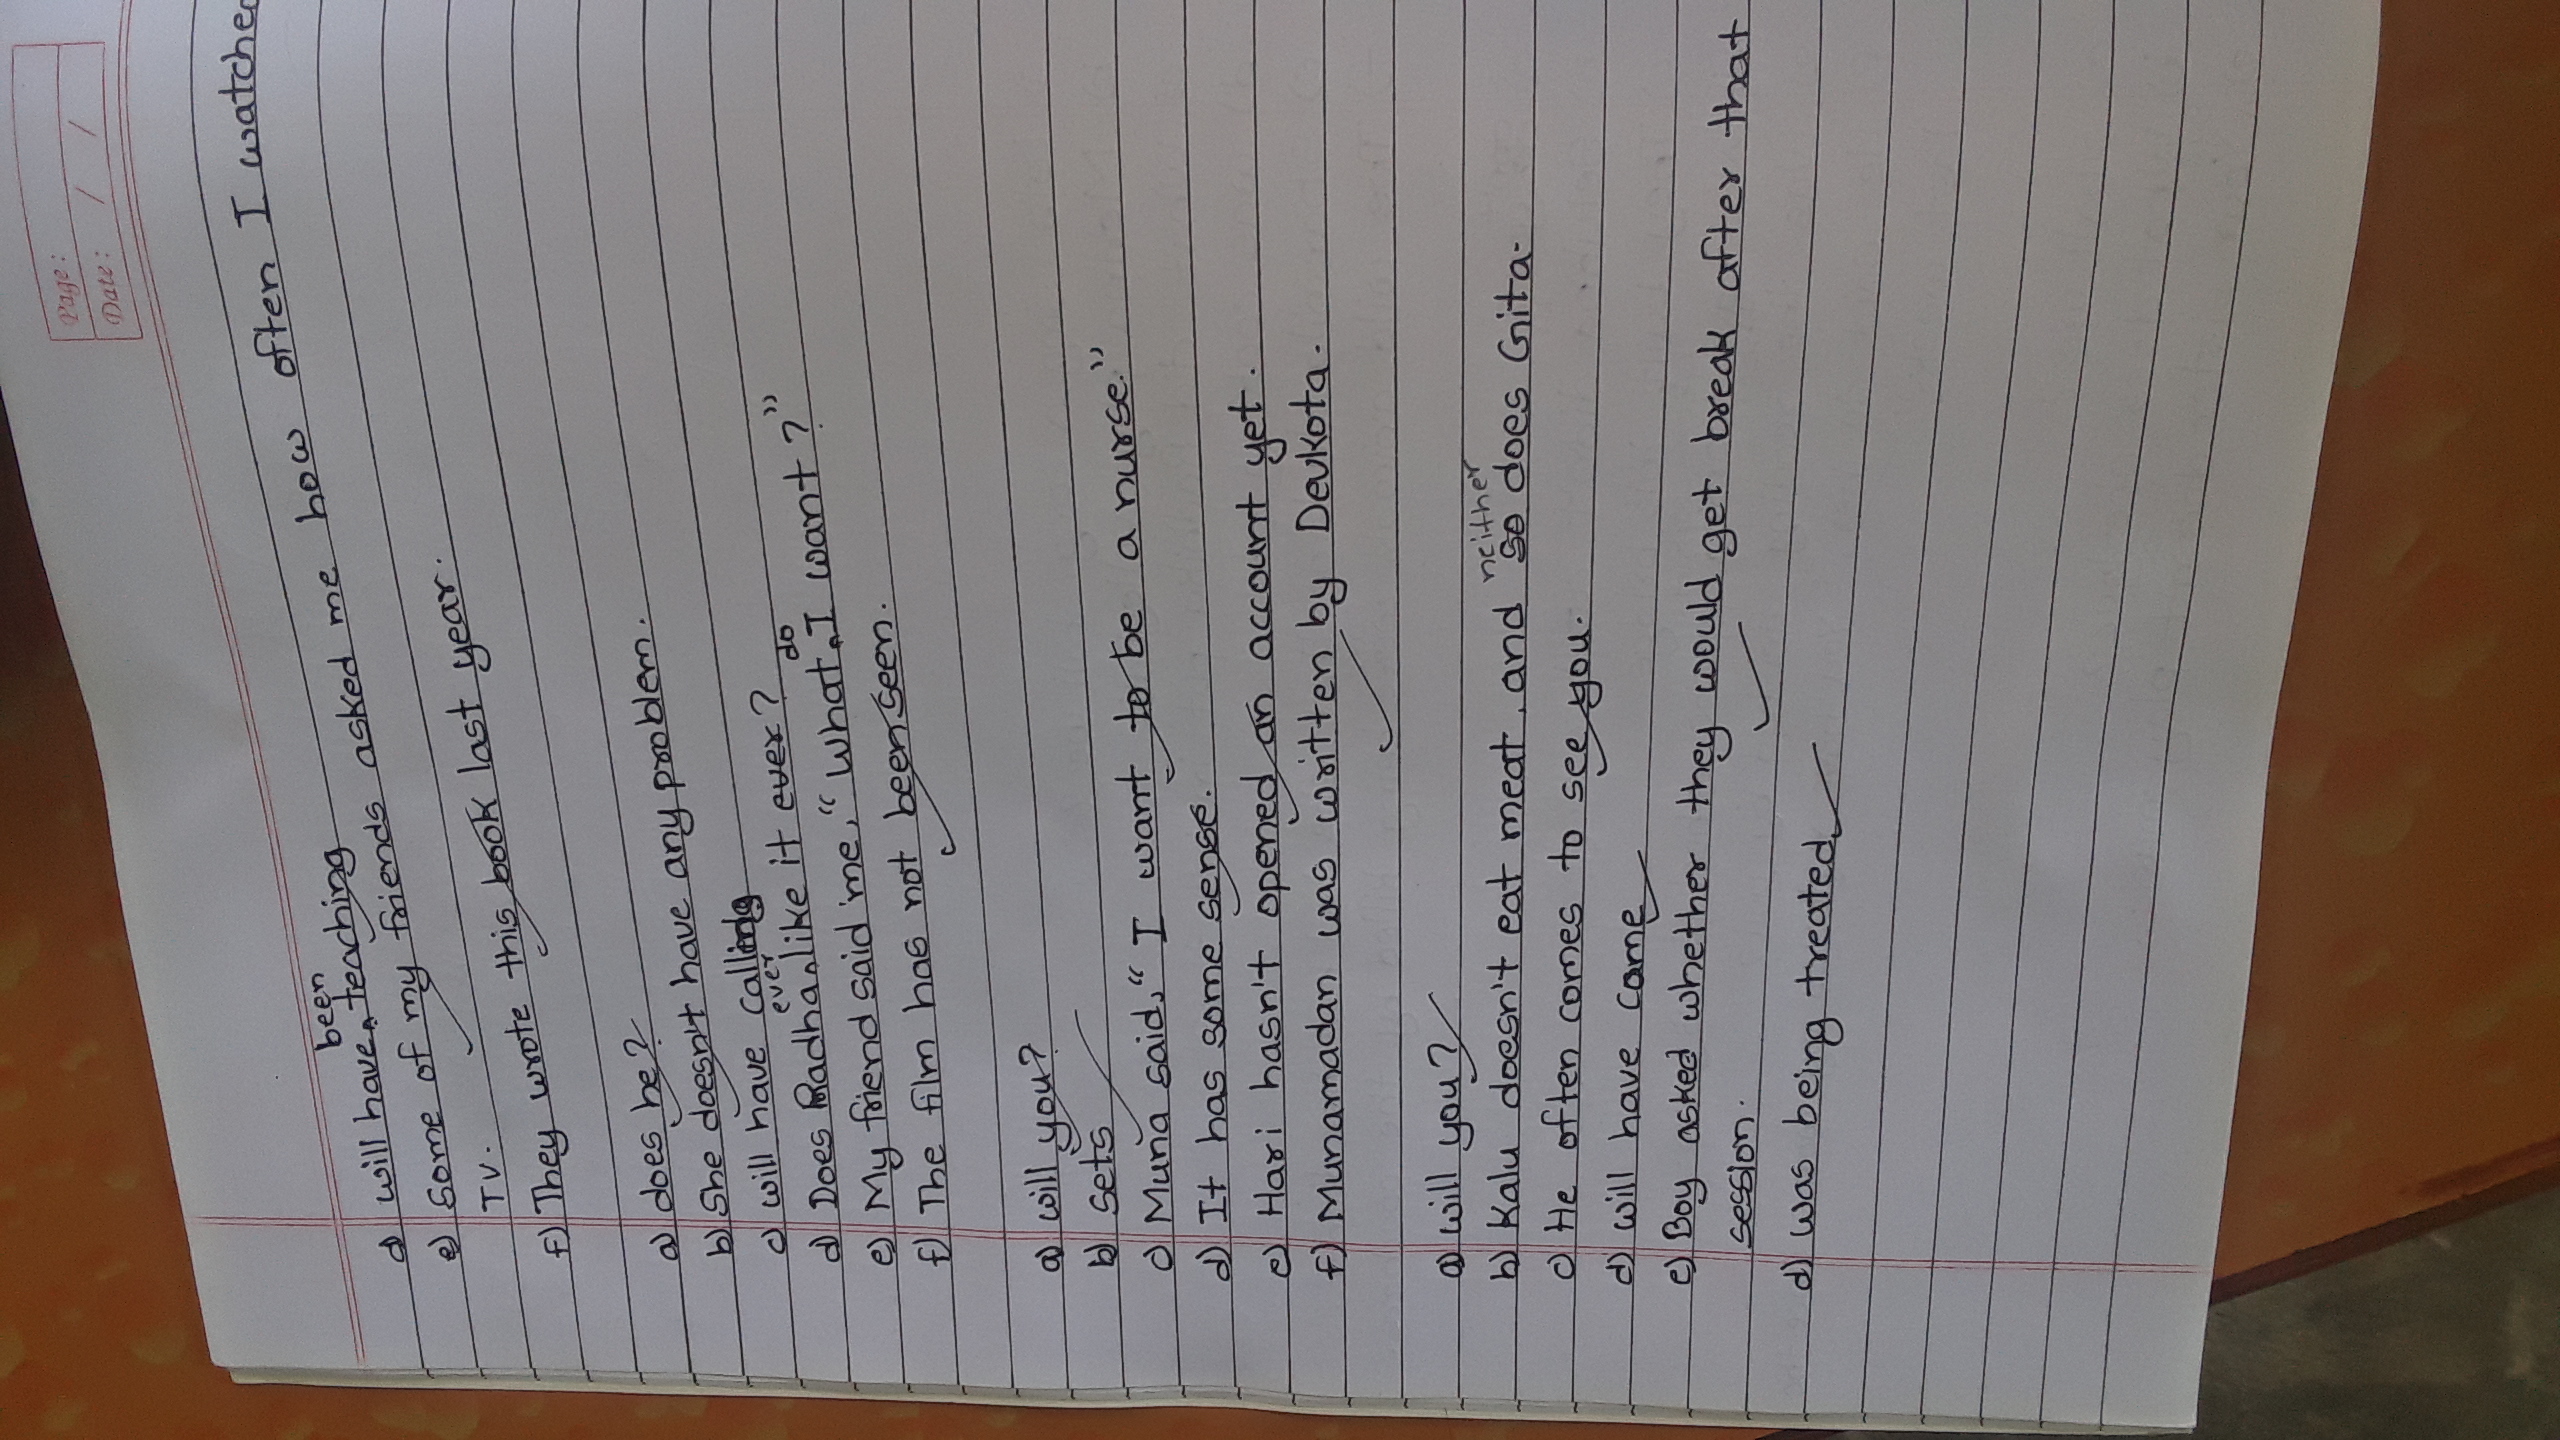 Page:
Date: / /
been
d) will have teaching
e) Some of my friends asked me how often I watched
TV.
f) They wrote this book last year.
a) does he?
b) She doesn't have any problem.
c) will have calling
ever do
d) Does Radha like it ever?
e) My friend said me, "What I want?"
f) The film has not been seen.
a) will you?
b) sets
c) Muna said, "I want to be a nurse."
d) It has some sense.
e) Hari hasn't opened an account yet.
f) Munamadan was written by Devkota.
a) will you?
neither
b) Kalu doesn't eat meat and so does Gita.
c) He often comes to see you.
d) will have come
e) Boy asked whether they would get break after that
session.
d) was being treated